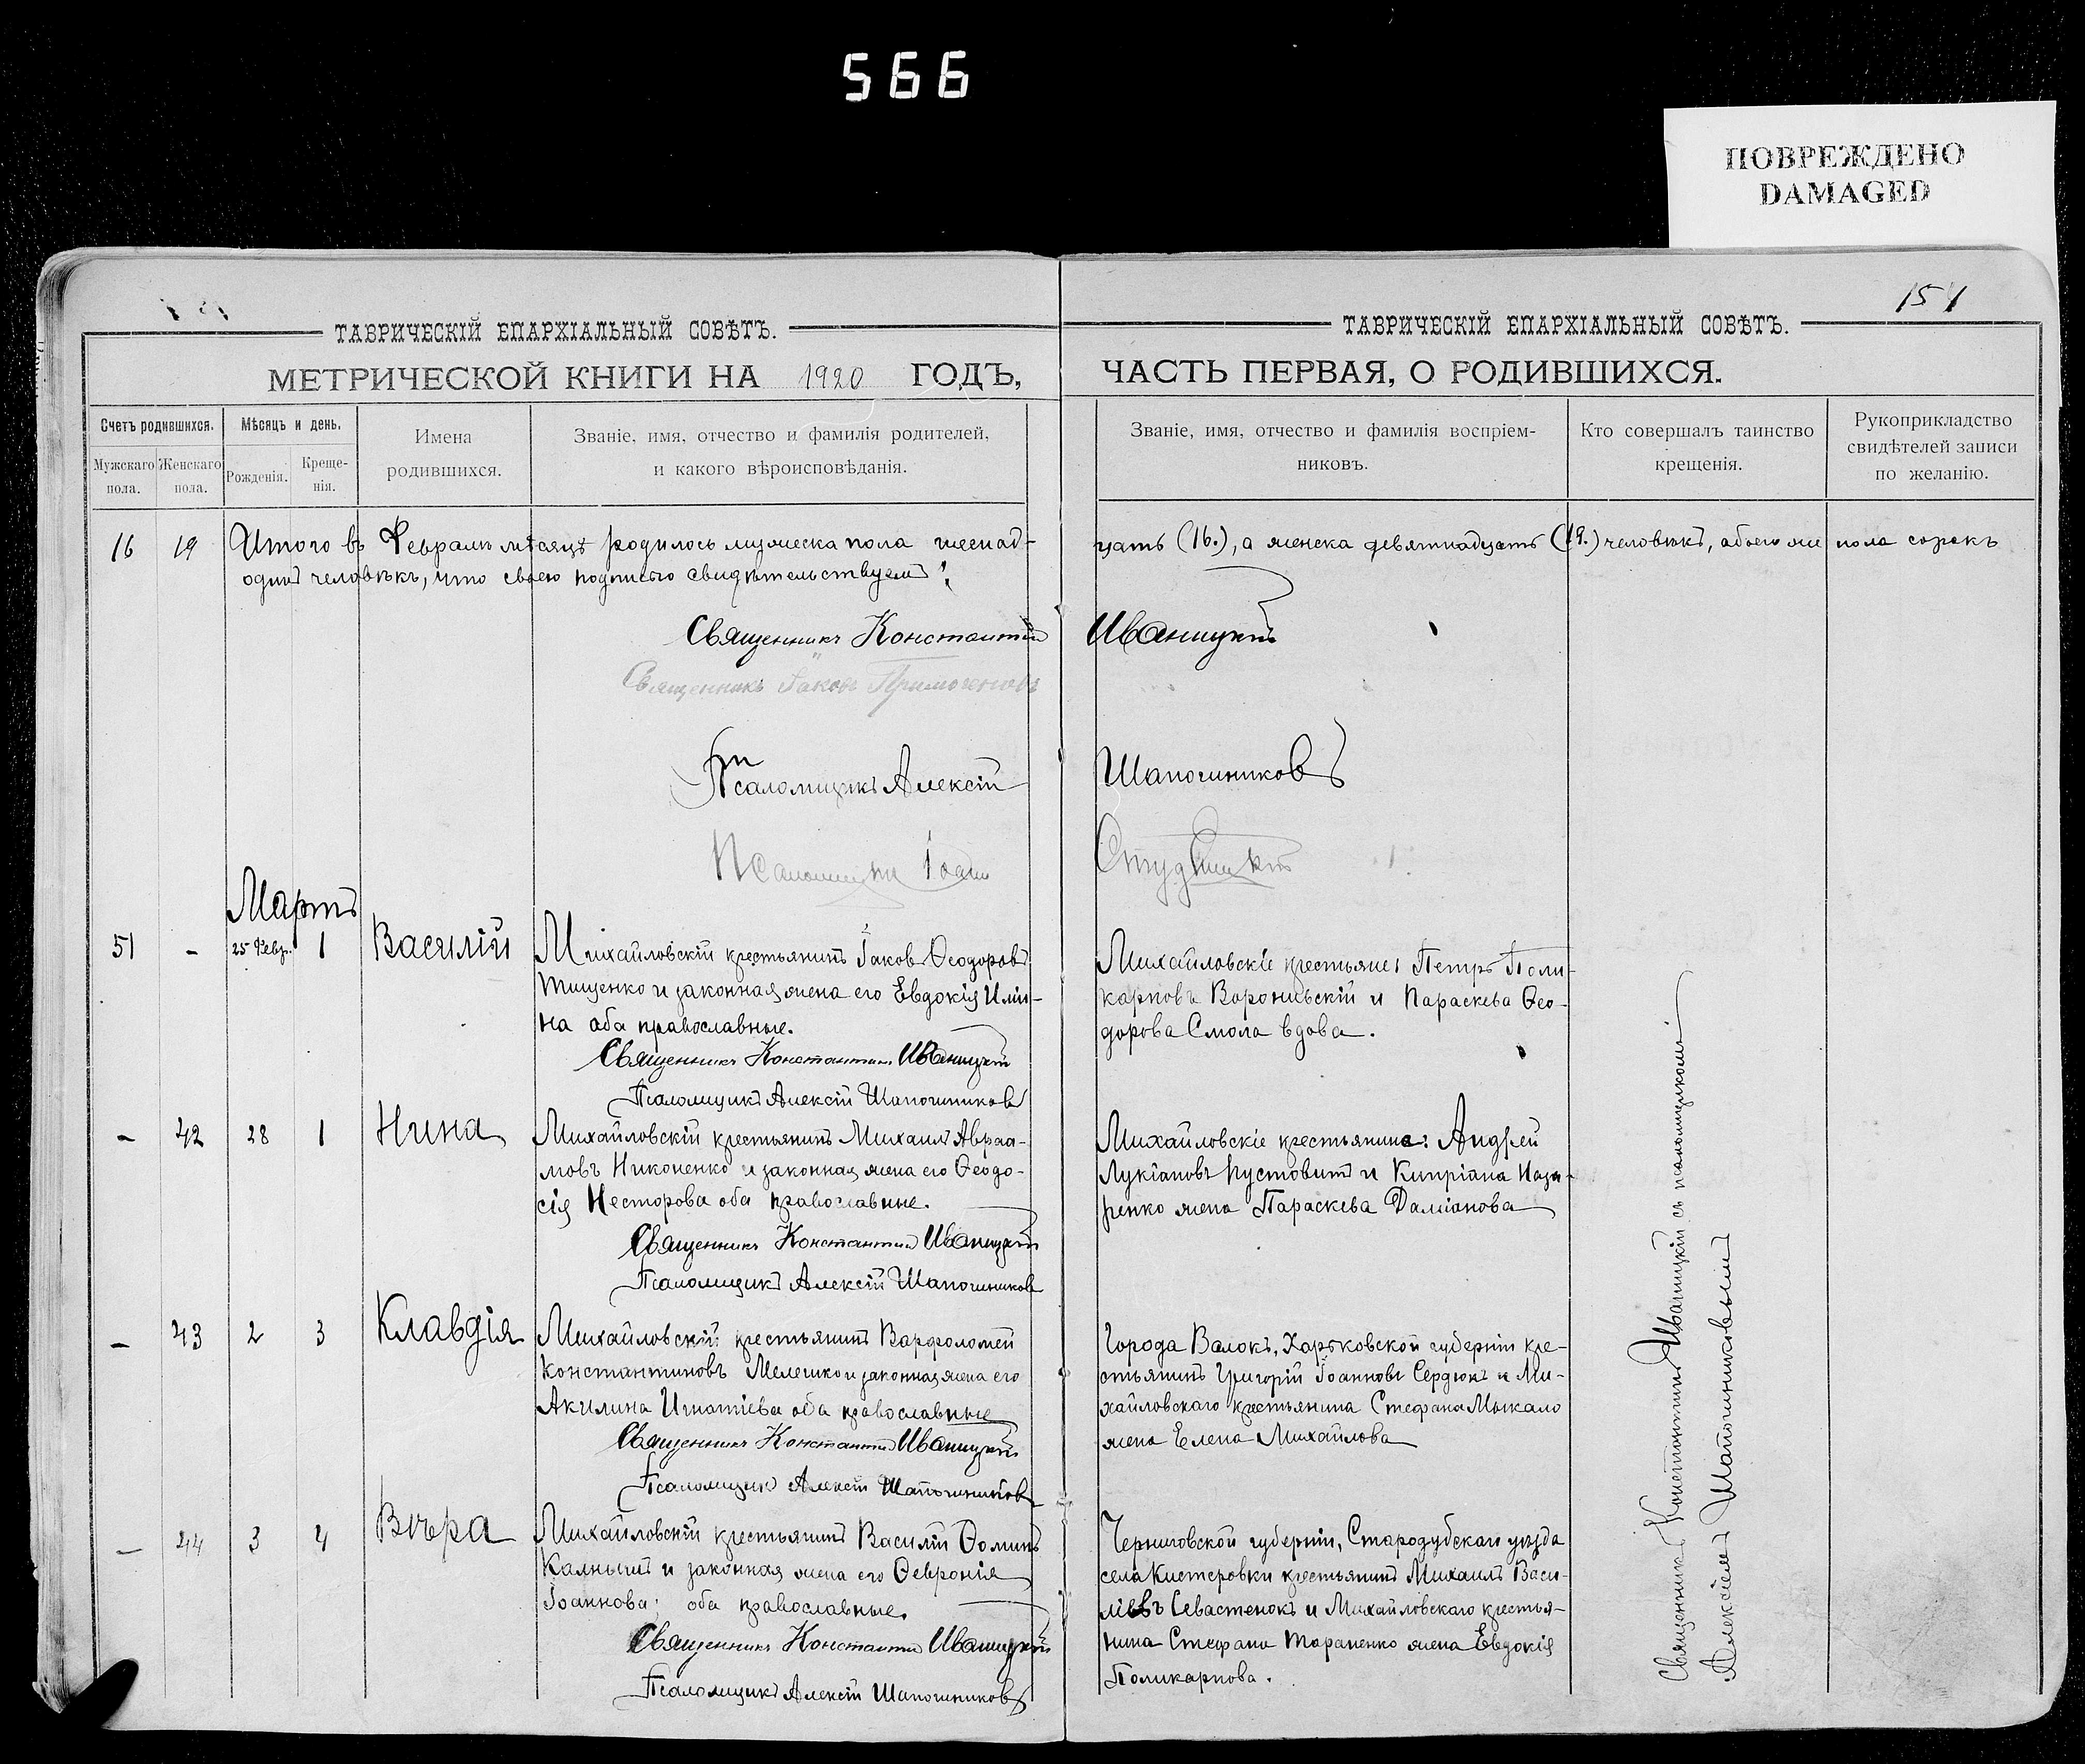 566
ПОВРЕЖДЕНО
DAMAGED
154
ТАВРИЧЕСКІЙ ЕПАРХІАЛЬНЫЙ СОВѢТЪ.
МЕТРИЧЕСКОЙ КНИГИ НА 1920 ГОДЪ,
Счетъ родившихся.
Мужскаго пола.
Женскаго пола.
Мѣсяцъ и день.
Рожденія.
Креще-
нія.
Имена
родившихся.
Званіе, имя, отчество и фамилія родителей,
и какого вѣроисповѣданія.
ТАВРИЧЕСКІЙ ЕПАРХІАЛЬНЫЙ СОВѢТЪ.
ЧАСТЬ ПЕРВАЯ, О РОДИВШИХСЯ.
Званіе, имя, отчество и фамилія воспріем-
никовъ.
Кто совершалъ таинство
крещенія.
Рукоприкладство
свидѣтелей записи
по желанію.
16 19 Итого въ Февралѣ мѣсяцѣ родилось мужеска пола шеснад-
цать (16.), а женска девятнадцать (19.) человѣкъ, обоего же пола сорокъ
одинъ человѣкъ, что своею подписью свидѣтельствуемъ:
Священникъ Константинъ Иваницкій
Священникъ Іаковъ
Псаломщикъ Алексій Шапошниковъ
Псаломщикъ Іоаннъ
Мартъ
51 - 25 Февр. 1 Василій
Михайловскій крестьянинъ Іаковъ Ѳеодоровъ
Тищенко и законная жена его Евдокія Илiи-
на оба православные.
Священникъ Константинъ Иваницкій
Псаломщикъ Алексій Шапошниковъ
Михайловскіе крестьяне: Петръ Поли-
карповъ Воронивскій и Параскева Ѳео-
дорова Смола вдова.
- 42 28 1 Нина
Михайловскій крестьянинъ Михаилъ Авраа-
мовъ Никоненко и законная жена его Ѳеодо-
сія Несторова оба православные.
Священникъ Константинъ Иваницкій
Псаломщикъ Алексій Шапошниковъ
Михайловскіе крестьянина: Андрей
Лукіановъ Пустовитъ и Кипріана Наза-
ренко жена Параскева Даміанова
- 43 2 3 Клавдія
Михайловскій крестьянинъ Варфоломей
Константиновъ Мелешко и законная жена его
Акилина Игнатіева оба православные
Священникъ Константинъ Иваницкій
Псаломщикъ Алексій Шапошниковъ
Города Валокъ, Харьковской губерніи кре-
стьянинъ Григорій Іоанновъ Сердюкъ и Ми-
хайловскаго крестьянина Стефана Мыкало
жена Елена Михайлова
- 44 3 4 Вѣра
Михайловскій крестьянинъ Василій Ѳоминъ
Калнышъ и законная жена его Ѳевронія
Іоаннова; оба православные.
Священникъ Константинъ Иваницкій
Псаломщикъ Алексій Шапошниковъ
Черниговской губерніи, Стародубскаго уѣзда
села Кистеровки крестьянинъ Михаилъ Васи-
ліевъ Севастенокъ и Михайловскаго крестья-
нина Стефана Тараненко жена Евдокія
Поликарпова.
Священникъ Константинъ Иваницкій съ псаломщикомъ
Алексіемъ Шапошниковымъ